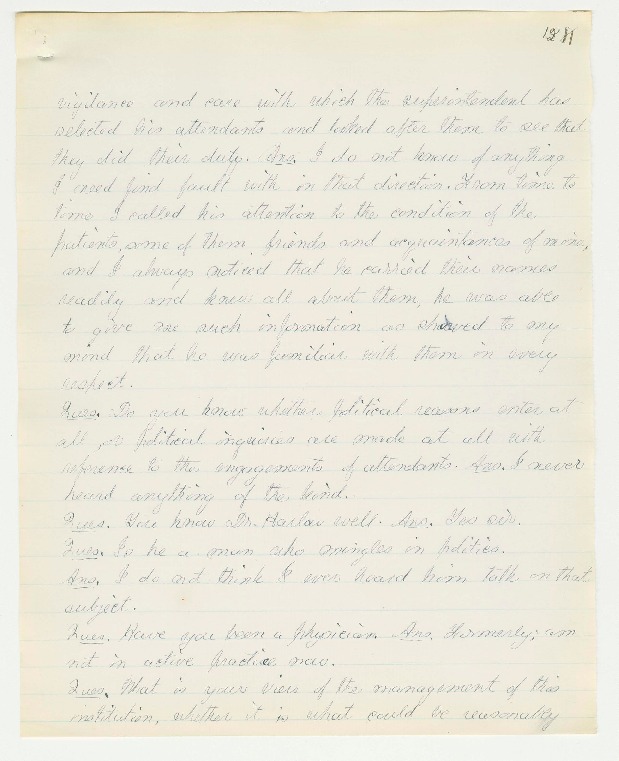 1211
vigilance and care with which the superintendent has
selected his attendants and looked after them to see that
they did their duty. Ans. I do not know of anything
I need find fault with in that direction. From time to
time I called his attention to the condition of the
patients, some of them friends and acquaintances of mine,
and I always noticed that he carried their names
readily and knew all about them, he was able
to give me such information as showed to my
mind that he was familiar with them in every
respect.
Ques. Do you know whether political reasons enter at
all, or political inquiries are made at all with
reference to the engagements of attendants. Ans. I never
heard anything of the kind.
Ques. You know Dr. Harlow well. Ans. Yes sir.
Ques. Is he a man who mingles in politics.
Ans. I do not think I ever heard him talk on that
subject.
Ques. Have you been a physician. Ans. Formerly; am
not in active practice now.
Ques. What is your view of the management of this
institution, whether it is what could be reasonably